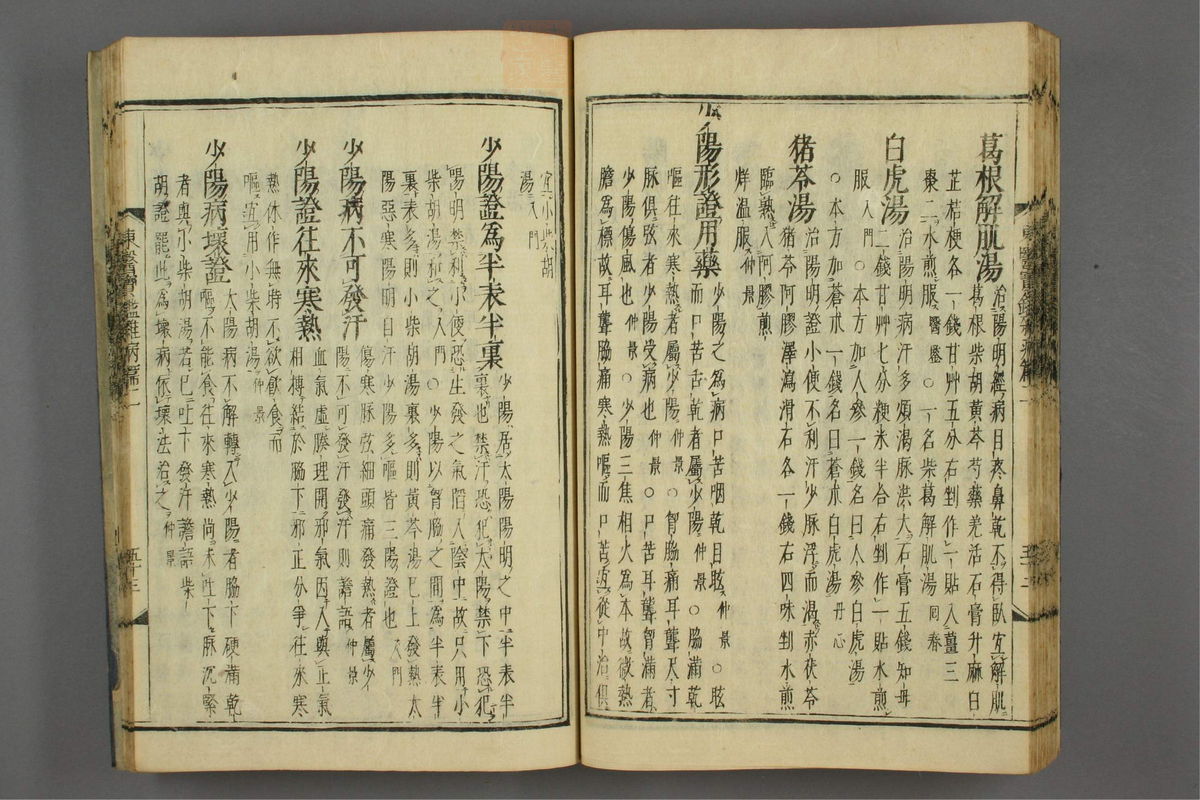 葛根解肌湯
治陽明經病目疼鼻乾不得臥宜解肌
葛根柴胡黃芩芍藥羌活石膏升麻白
芷桔梗各一錢甘艸五分右剉作一貼入薑三
棗二水煎服醫鑒○一名柴葛解肌湯囘春
白虎湯
治陽明病汗多煩渴脉洪大石膏五錢知母
二錢甘艸七分粳米半合右剉作一貼水煎
服入門○本方加人參一錢名曰人參白虎湯
○本方加蒼朮一錢名曰蒼朮白虎湯丹心
猪苓湯
治陽明證小便不利汗少脉浮而渴赤茯苓
猪苓阿膠澤瀉滑石各一錢右四味剉水煎
臨熟入阿膠煎
烊溫服仲景
少陽形證用藥
少陽之爲病口苦咽乾目眩仲景○眩
而口苦舌乾者屬少陽仲景○脇滿乾
嘔往來寒熱者屬少陽仲景○胷脇痛耳聾尺寸
脉俱弦者少陽受病也仲景○口苦耳聾胷滿者
少陽傷風也仲景○少陽三焦相火爲本故微熱
膽爲標故耳聾脇痛寒熱嘔而口苦宜從中治俱
宜小柴胡
湯入門
少陽證爲半表半裏
少陽居太陽陽明之中半表半
裏也禁汗恐犯太陽禁下恐犯
陽明禁利小便恐生發之氣陷入陰中故只用小
柴胡湯和之入門○少陽以胷脇之間爲半表半
裏表多則小柴胡湯裏多則黃芩湯已上發熱太
陽惡寒陽明自汗少陽多嘔皆三陽證也入門
少陽病不可發汗
傷寒脉弦細頭痛發熱者屬少
陽不可發汗發汗則譫語仲景
少陽證往來寒熱
血氣虛腠理開邪氣因入與正氣
相搏結於脇下邪正分爭往來寒
熱休作無時不欲飮食而
嘔宜用小柴胡湯仲景
少陽病壞證
太陽病不解轉入少陽者脇下硬滿乾
嘔不能食往來寒熱尚未吐下脉沉緊
者與小柴胡湯若已吐下發汗譫語柴
胡證罷此爲壞病依壞法治之仲景